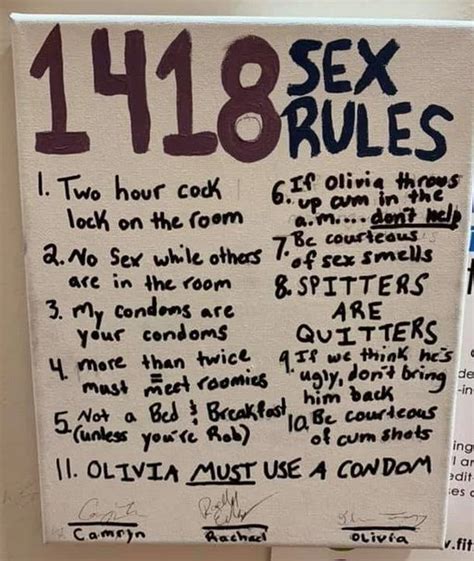 1418 SEX
RULES
1. Two hour cock
lock on the room
2. No Sex while others
are in the room
3. My condoms are
your condoms
4. more than twice
must meet roomies
5. Not a Bed & Breakfast
(unless you're Rob)
6. If Olivia throws
up cum in the
a.m.... don't help
7. Be courteous
of sex smells
8. SPITTERS
ARE
QUITTERS
9 If we think he's
ugly, don't bring
him back
10. Be courteous
of cum shots
11. OLIVIA MUST USE A CONDOM
Camryn
Rachael
Olivia
de
-in
ing
edit
v.fit